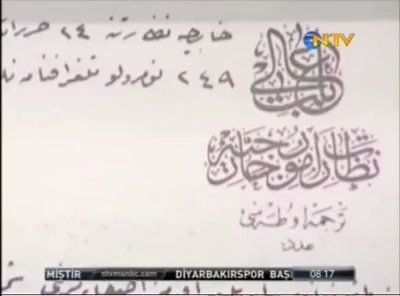 NTV
خارجیه نظارتنه ٢٤
٢٤٩ نومرولو تلغرافنامه
باب عالی
نظارت امور خارجیه
ترجمه اوطه سی
عدد
MİŞTİR ntvmsnbc.com DİYARBAKIRSPOR BAŞ 08:17